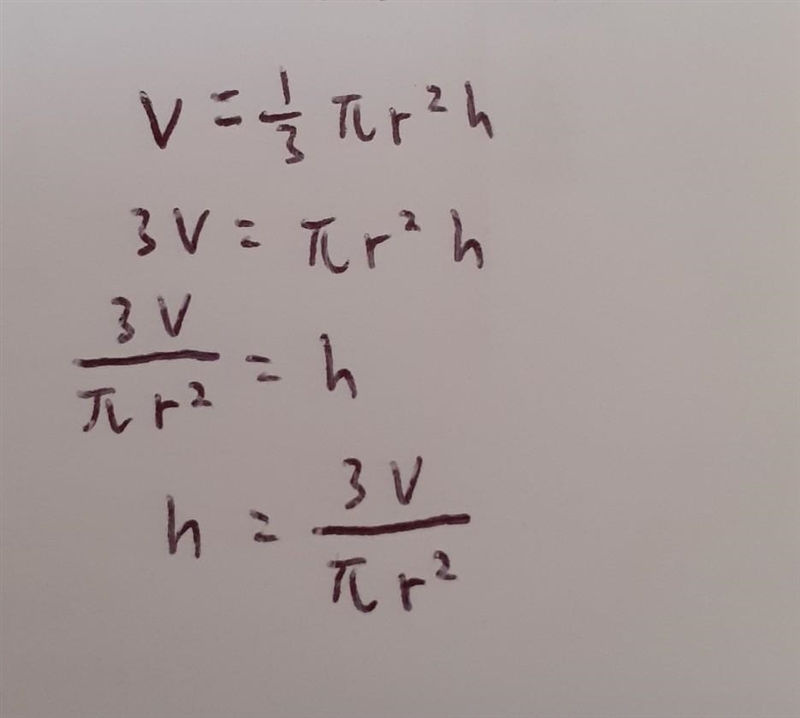 V = 1/3 πr²h
3V = πr²h
3V/πr² = h
h = 3V/πr²